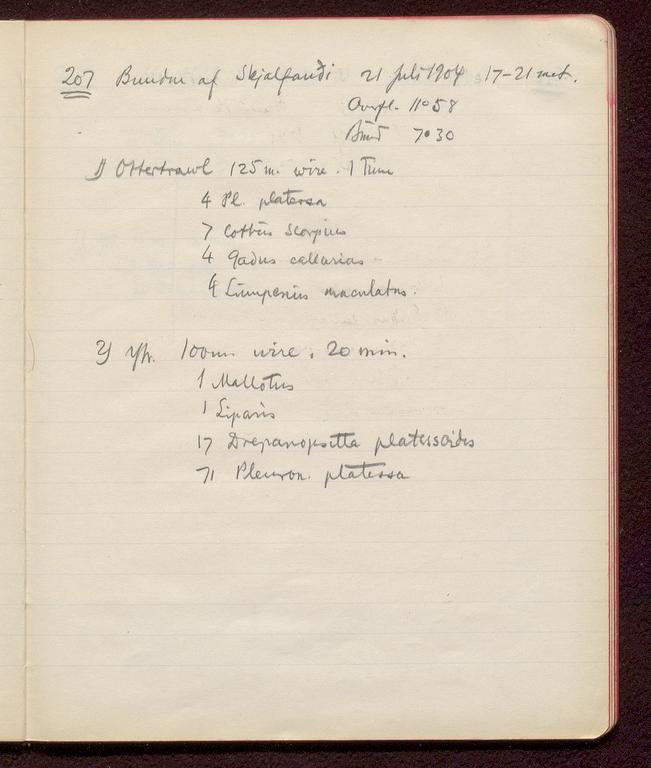 207 Bunden af Skjalfandi 21 juli 1904 17-21 met.
Overfl. 11°58
Bund 7°30
1) Ottertrawl 125 m. wire. 1 Time
4 Pl. platessa
7 Cottus scorpius
4 Gadus callarias
4 Lumpenus maculatus.
2) Yt. 100 m. wire. 20 min.
1 Mallotus
1 Liparis
17 Drepanopsetta platessoides
71 Pleuron. platessa